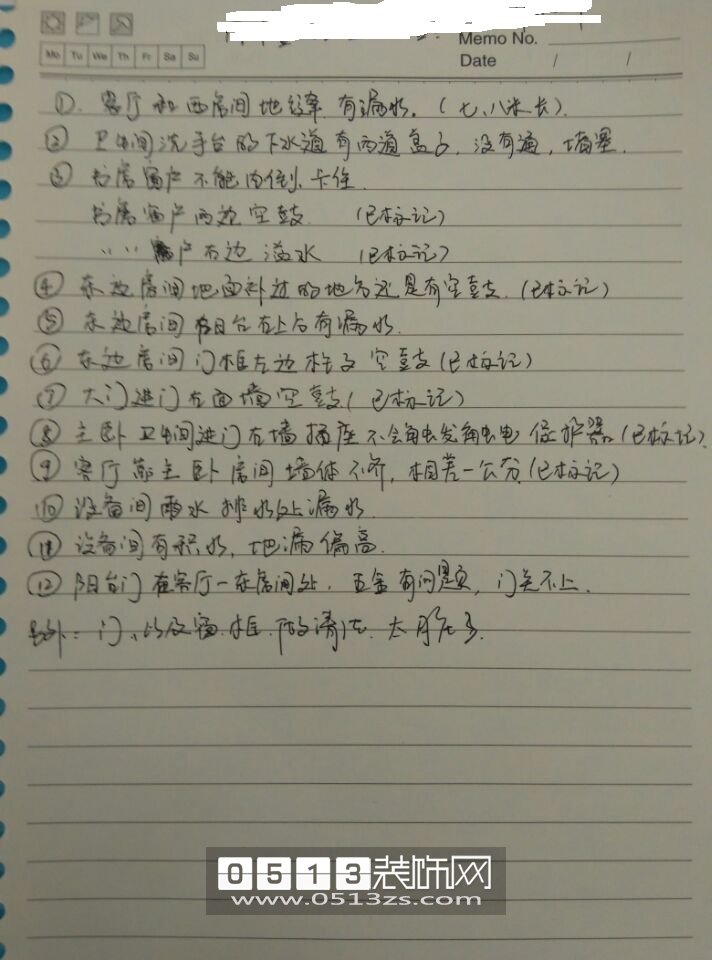 Memo No.
Mo Tu We Th Fr Sa Su
Date / /
①. 客厅和西房间地缝 有漏水.(七、八米长).
② 卫生间洗手台的下水道有两道盖子,没有通,堵塞.
③ 书房窗户不能内倒,卡住.
书房窗户两边空鼓 (已标记)
‥ ‥ 窗户右边 溢水 (已标记)
④ 东边房间地面补过的地方还是有空鼓.(已标记)
⑤ 东边房间阳台右上方有漏水.
⑥ 东边房间门框左边柱子空鼓(已标记)
⑦ 大门进门左面墙空鼓(已标记)
⑧ 主卧卫生间进门右墙插座不会触发触电保护器(已标记).
⑨ 客厅靠主卧房间墙体不齐,相差一公分(已标记)
⑩ 设备间雨水排水处漏水
⑪ 设备间有积水,地漏偏高.
⑫ 阳台门在客厅一东房间处.五金有问题,门关不上.
另外:门、以及窗框 做清洁.太脏了.
0513装饰网
www.0513zs.com